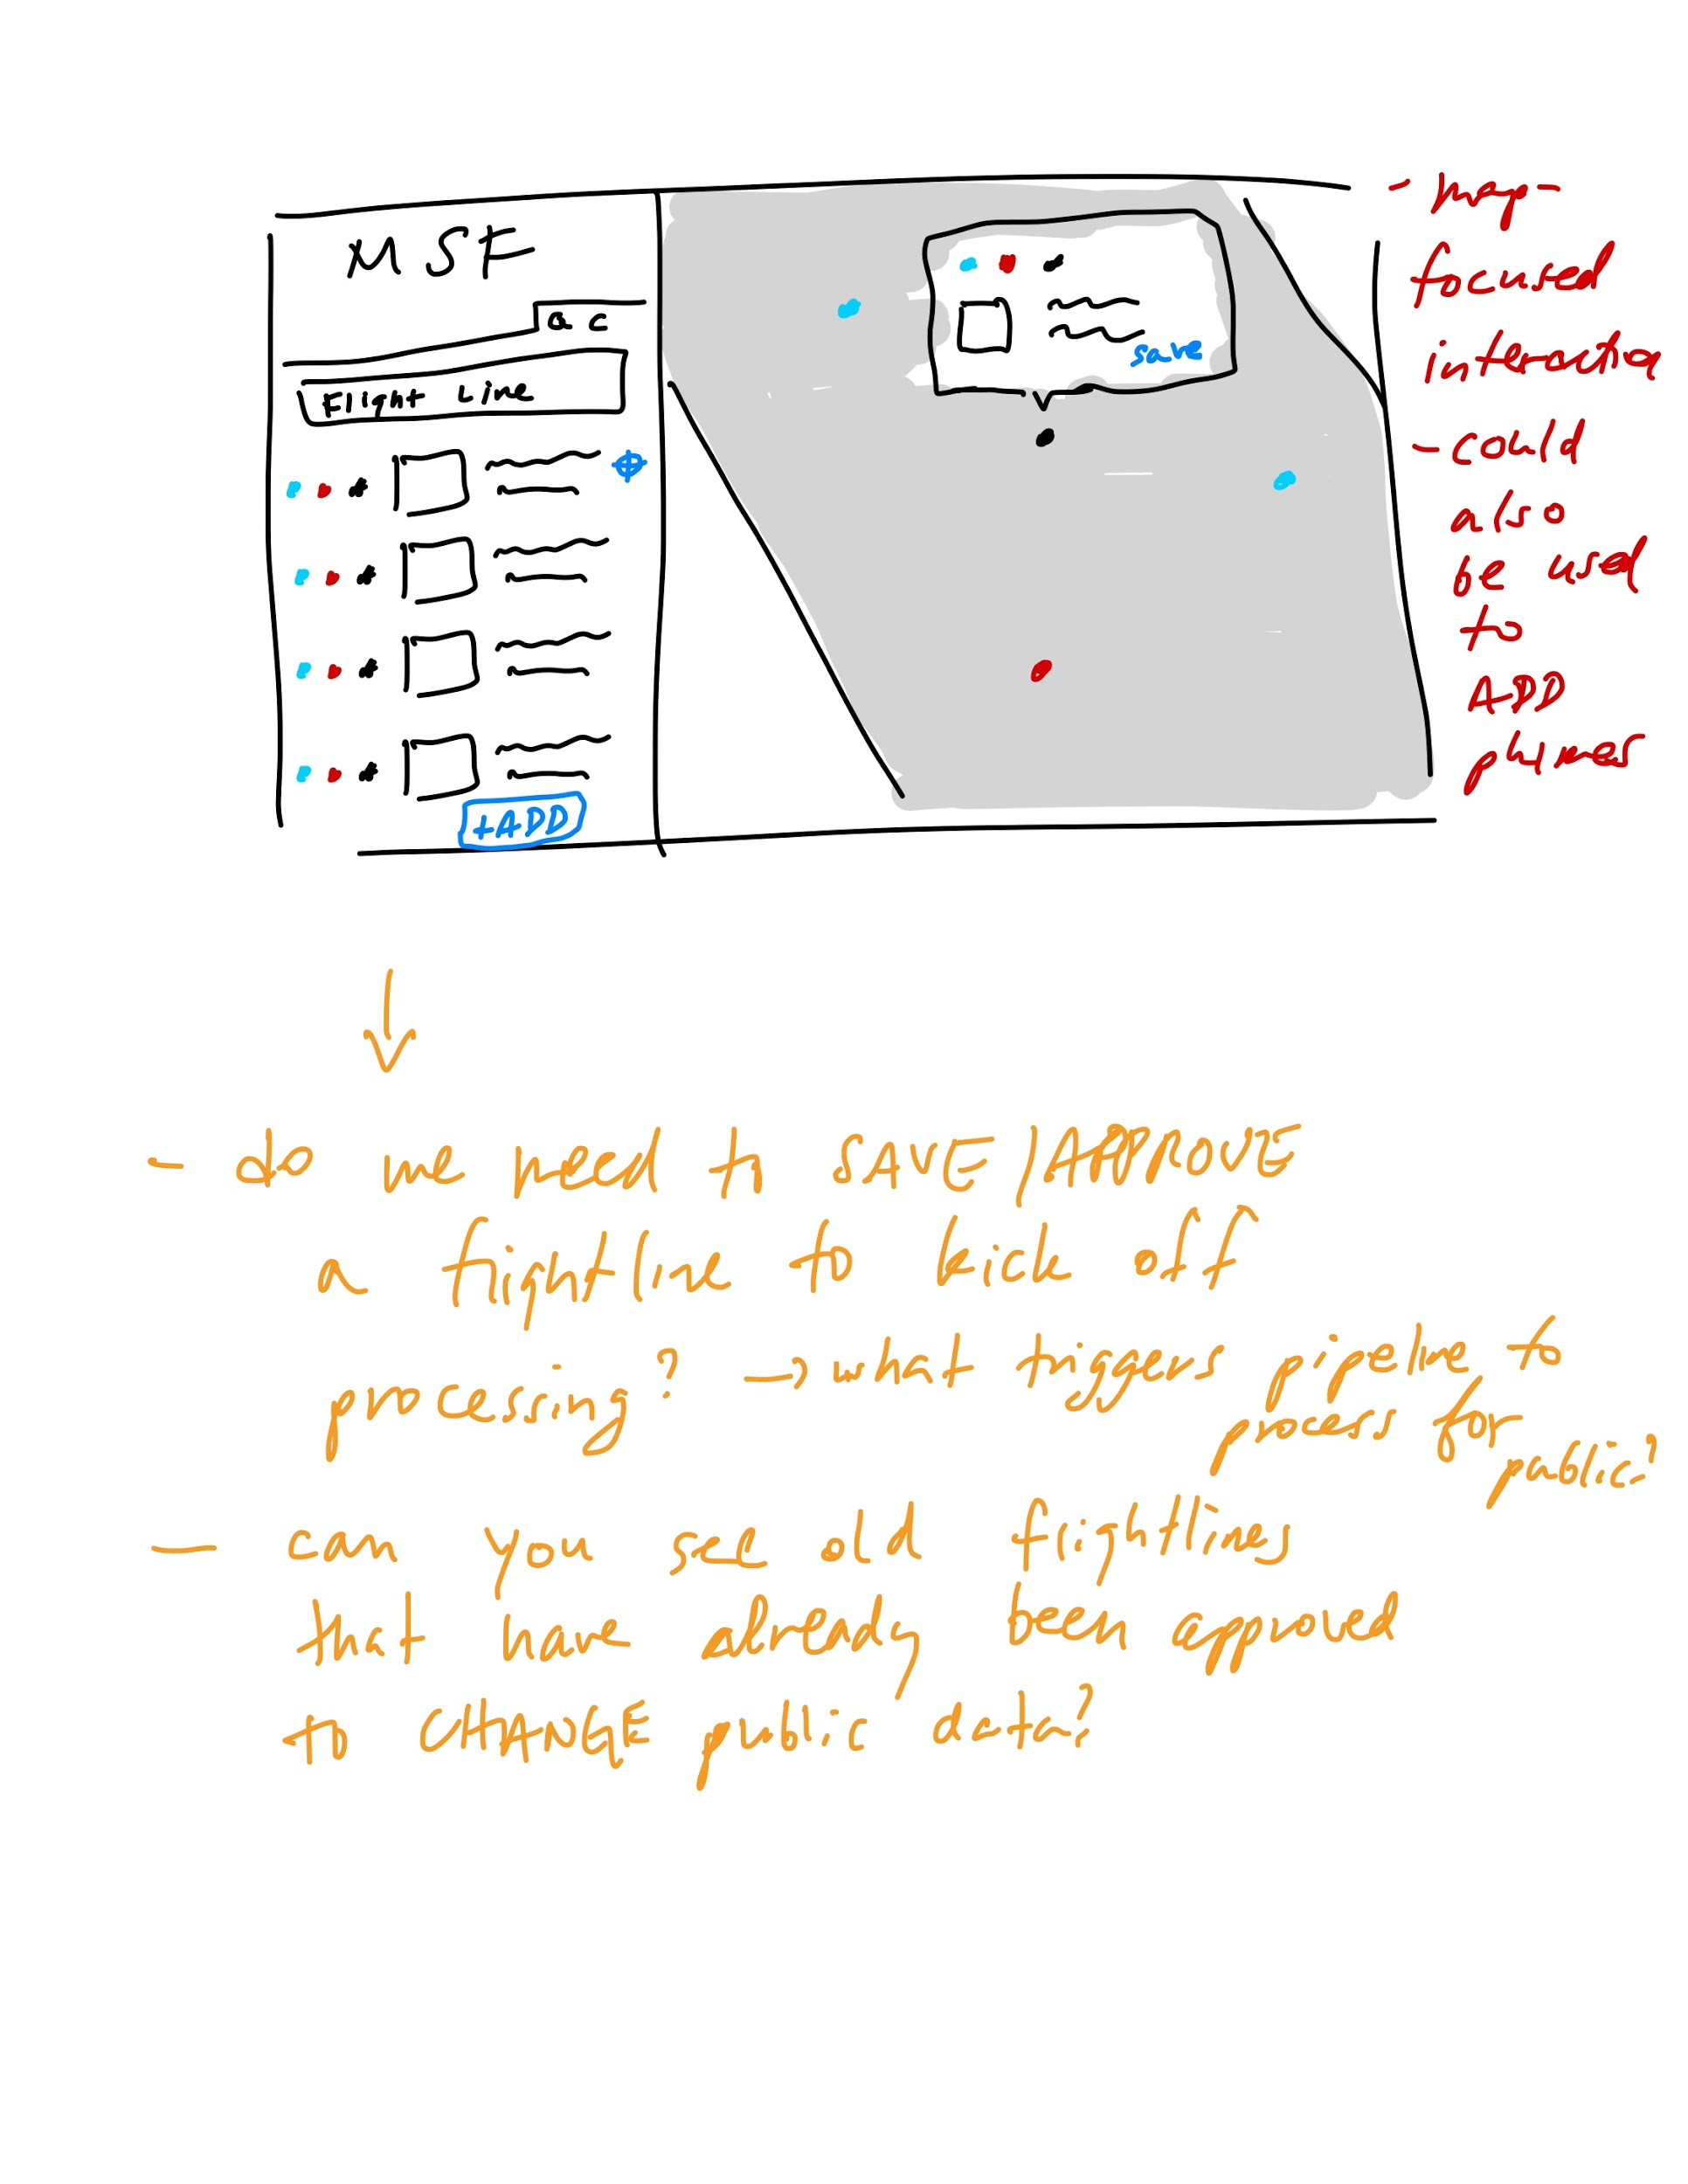 MSF
QC
Flight Line
save
+ADD
- map-
focused
interaction
- could
also
be used
to
ADD
plumes
- do we need to SAVE/APPROVE
a flightline to kick off
processing? → what triggers pipeline to
process for
public?
- can you see old flightlines
that have already been approved
to CHANGE public data?